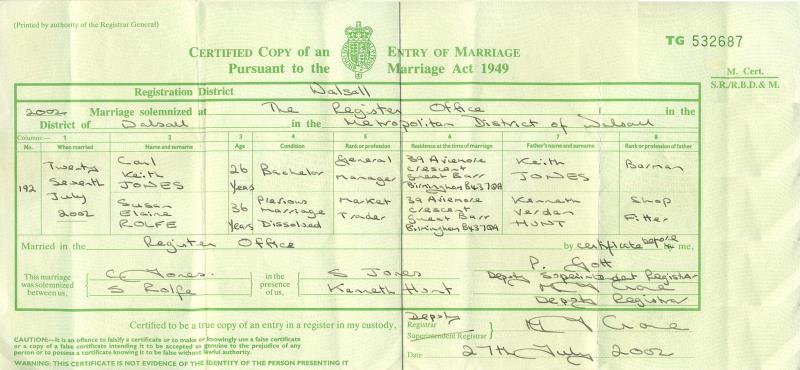 (Printed by authority of the Registrar General)
TG 532687
CERTIFIED COPY of an ENTRY OF MARRIAGE
Pursuant to the Marriage Act 1949
M. Cert.
S.R./R.B.D.& M.
Registration District Walsall
2002 Marriage solemnized at The Register Office in the
District of Walsall in the Metropolitan District of Walsall
Columns:— 1 2 3 4 5 6 7 8
No. When married Name and surname Age Condition Rank or profession Residence at the time of marriage Father's name and surname Rank or profession of father
192 Twenty Seventh July 2002
Carl Keith JONES 26 Years Bachelor General Manager 39 Aviemore Crescent Great Barr Birmingham B43 7QA Keith JONES Barman
Susan Elaine ROLFE 36 Years Previous Marriage Dissolved Market Trader 39 Aviemore Crescent Great Barr Birmingham B43 7QA Kenneth Verdan HUNT Shop Fitter
Married in the Register Office by certificate before me,
This marriage was solemnized between us, C Jones. S Rolfe in the presence of us, S Jones Kenneth Hunt
P. Gott
Deputy Superintendent Registrar
Deputy Registrar
Certified to be a true copy of an entry in a register in my custody,
Deputy
Registrar
Superintendent Registrar
CAUTION:—It is an offence to falsify a certificate or to make or knowingly use a false certificate
or a copy of a false certificate intending it to be accepted as genuine to the prejudice of any
person or to possess a certificate knowing it to be false without lawful authority.
Date 27th July 2002
WARNING: THIS CERTIFICATE IS NOT EVIDENCE OF THE IDENTITY OF THE PERSON PRESENTING IT